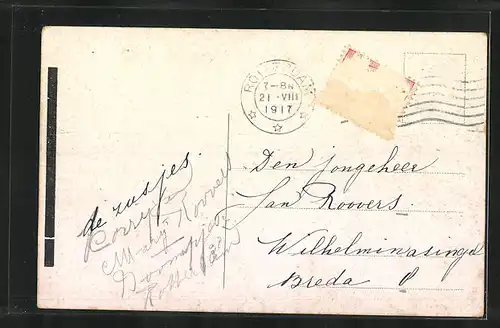 ROTTERDAM
7-8N
21·VIII
1917
de zusjes.
Corry en
Mary Roovers
Rotterdam
Den jongeheer
Jan Roovers.
Wilhelminasingel
Breda